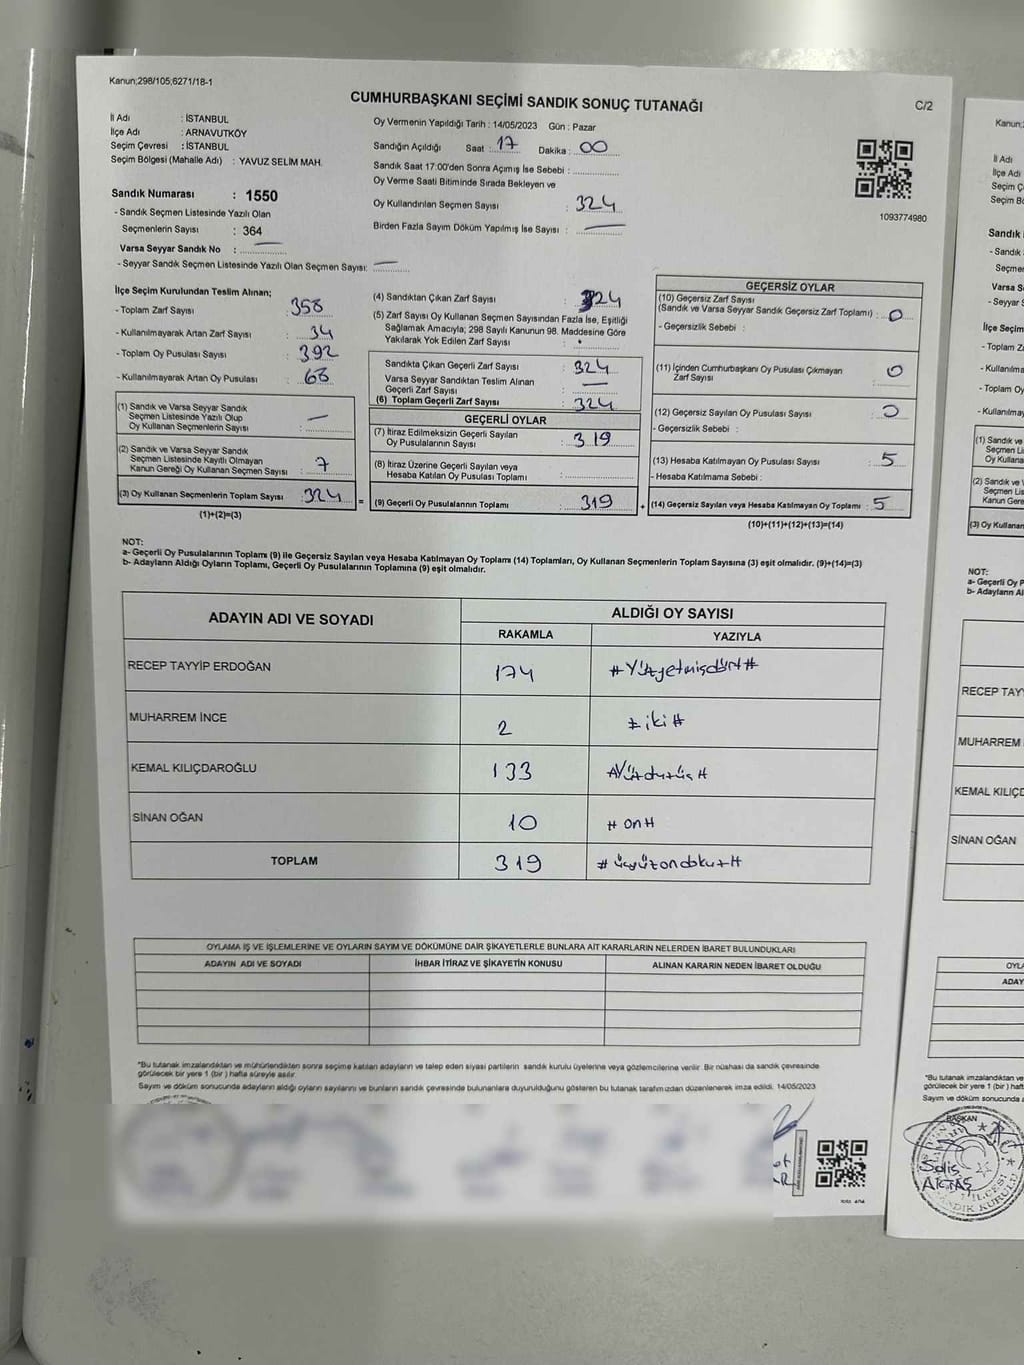 Kanun;298/105;6271/18-1
CUMHURBAŞKANI SEÇİMİ SANDIK SONUÇ TUTANAĞI
C/2
İl Adı : İSTANBUL
İlçe Adı : ARNAVUTKÖY
Seçim Çevresi : İSTANBUL
Seçim Bölgesi (Mahalle Adı) : YAVUZ SELİM MAH.
Sandık Numarası : 1550
- Sandık Seçmen Listesinde Yazılı Olan
Seçmenlerin Sayısı : 364
Varsa Seyyar Sandık No :
- Seyyar Sandık Seçmen Listesinde Yazılı Olan Seçmen Sayısı:
Oy Vermenin Yapıldığı Tarih : 14/05/2023 Gün : Pazar
Sandığın Açıldığı Saat : 17 Dakika : 00
Sandık Saat 17:00'den Sonra Açımış İse Sebebi :
Oy Verme Saati Bitiminde Sırada Bekleyen ve
Oy Kullandırılan Seçmen Sayısı : 324
Birden Fazla Sayım Döküm Yapılmış İse Sayısı :
1093774980
İlçe Seçim Kurulundan Teslim Alınan;
- Toplam Zarf Sayısı : 358
- Kullanılmayarak Artan Zarf Sayısı : 34
- Toplam Oy Pusulası Sayısı : 392
- Kullanılmayarak Artan Oy Pusulası : 68
(1) Sandık ve Varsa Seyyar Sandık
Seçmen Listesinde Yazılı Olup
Oy Kullanan Seçmenlerin Sayısı :
(2) Sandık ve Varsa Seyyar Sandık
Seçmen Listesinde Kayıtlı Olmayan
Kanun Gereği Oy Kullanan Seçmen Sayısı : 7
(3) Oy Kullanan Seçmenlerin Toplam Sayısı : 324
(1)+(2)=(3)
(4) Sandıktan Çıkan Zarf Sayısı : 324
(5) Zarf Sayısı Oy Kullanan Seçmen Sayısından Fazla İse, Eşitliği
Sağlamak Amacıyla; 298 Sayılı Kanunun 98. Maddesine Göre
Yakılarak Yok Edilen Zarf Sayısı :
Sandıkta Çıkan Geçerli Zarf Sayısı : 324
Varsa Seyyar Sandıktan Teslim Alınan
Geçerli Zarf Sayısı :
(6) Toplam Geçerli Zarf Sayısı : 324
GEÇERLİ OYLAR
(7) İtiraz Edilmeksizin Geçerli Sayılan
Oy Pusulalarının Sayısı : 319
(8) İtiraz Üzerine Geçerli Sayılan veya
Hesaba Katılan Oy Pusulası Toplamı :
(9) Geçerli Oy Pusulalarının Toplamı : 319
GEÇERSİZ OYLAR
(10) Geçersiz Zarf Sayısı
(Sandık ve Varsa Seyyar Sandık Geçersiz Zarf Toplamı) : 0
- Geçersizlik Sebebi :
(11) İçinden Cumhurbaşkanı Oy Pusulası Çıkmayan
Zarf Sayısı : 0
(12) Geçersiz Sayılan Oy Pusulası Sayısı : 0
- Geçersizlik Sebebi :
(13) Hesaba Katılmayan Oy Pusulası Sayısı : 5
- Hesaba Katılmama Sebebi :
(14) Geçersiz Sayılan veya Hesaba Katılmayan Oy Toplamı : 5
(10)+(11)+(12)+(13)=(14)
NOT:
a- Geçerli Oy Pusulalarının Toplamı (9) ile Geçersiz Sayılan veya Hesaba Katılmayan Oy Toplamı (14) Toplamları, Oy Kullanan Seçmenlerin Toplam Sayısına (3) eşit olmalıdır. (9)+(14)=(3)
b- Adayların Aldığı Oyların Toplamı, Geçerli Oy Pusulalarının Toplamına (9) eşit olmalıdır.
ADAYIN ADI VE SOYADI ALDIĞI OY SAYISI
RAKAMLA YAZIYLA
RECEP TAYYİP ERDOĞAN 174 #Yüzyetmişdört#
MUHARREM İNCE 2 #iki#
KEMAL KILIÇDAROĞLU 133
SİNAN OĞAN 10 #on#
TOPLAM 319 #üçyüzondokuz#
OYLAMA İŞ VE İŞLEMLERİNE VE OYLARIN SAYIM VE DÖKÜMÜNE DAİR ŞİKAYETLERLE BUNLARA AİT KARARLARIN NELERDEN İBARET BULUNDUKLARI
ADAYIN ADI VE SOYADI İHBAR İTİRAZ VE ŞİKAYETİN KONUSU ALINAN KARARIN NEDEN İBARET OLDUĞU
"Bu tutanak imzalandıktan ve mühürlendikten sonra seçime katılan adayların ve talep eden siyasi partilerin sandık kurulu üyelerine veya gözlemcilerine verilir. Bir nüshası da sandık çevresinde
görülecek bir yere 1 (bir) hafta süreyle asılır.
Sayım ve döküm sonucunda adayların aldığı oyların sayılarını ve bunların sandık çevresinde bulunanlara duyurulduğunu gösteren bu tutanak tarafımızdan düzenlenerek imza edildi. 14/05/2023
Kanun;
İl Adı
İlçe Adı
Seçim Ç
Seçim Bö
Sandık
- Sandık
Seçme
Varsa S
- Seyyar
İlçe Seçim
- Toplam Z
- Kullanılma
- Toplam Oy
- Kullanılmay
(1) Sandık ve
Seçmen Li
Oy Kullana
(2) Sandık ve
Seçmen Lis
Kanun Gere
(3) Oy Kullanan
NOT:
a- Geçerli Oy P
b- Adayların Al
RECEP TAYY
MUHARREM
KEMAL KILIÇD
SİNAN OĞAN
OYLA
ADAY
"Bu tutanak imzalandıktan ve
görülecek bir yere 1 (bir) haft
Sayım ve döküm sonucunda a
BAŞKAN
Salis
AKTAŞ